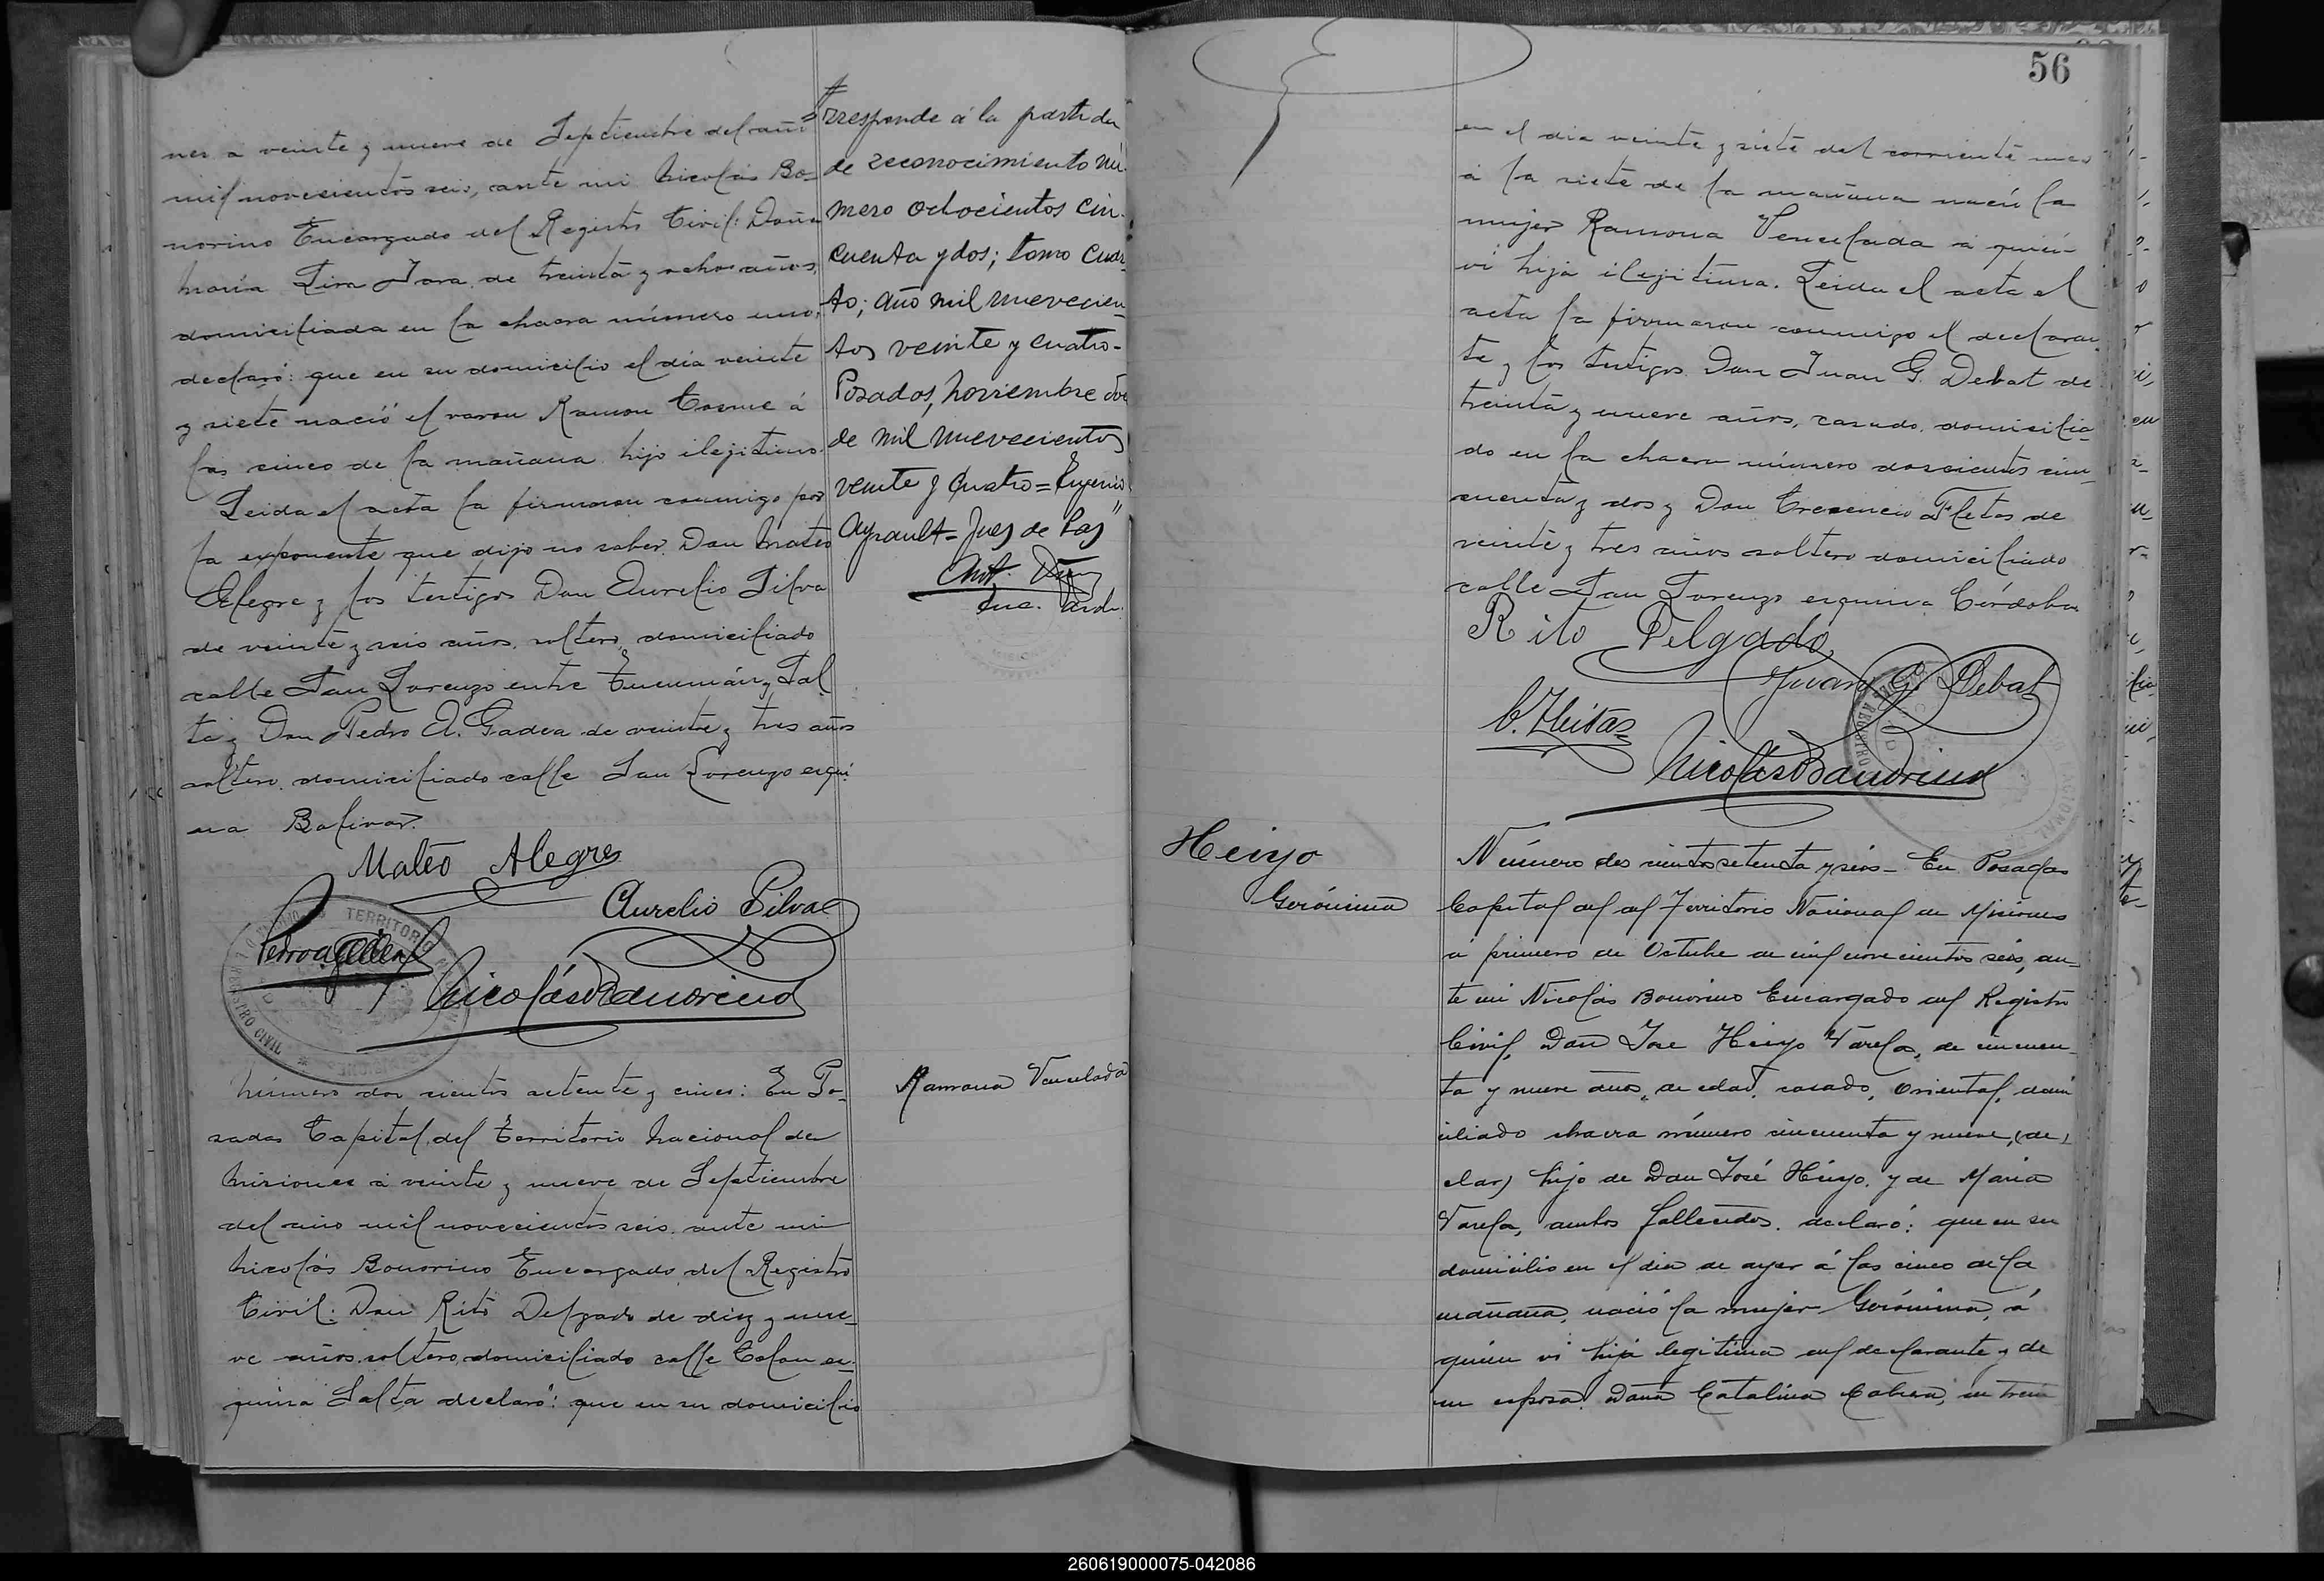 nes a veinte y nueve de Septiembre del año
mil novecientos seis, ante mi Nicolás Bo-
norino Encargado del Registro Civil: Doña
María Lira Jara de treinta y ocho años,
domiciliada en la chacra número uno,
declaró: que en su domicilio el dia veinte
y siete nació el varon Ramon Cosme á
las cinco de la mañana hijo ilegitimo.
Leida el acta la firmaron conmigo por
la exponente que dijo no saber Don Mateo
Alegre y los testigos Don Aurelio Silva
de veinte y seis años, soltero, domiciliado
calle San Lorenzo entre Tucumán y Sal
ta y Don Pedro A. Gadea de veinte y tres años
soltero, domiciliado calle San Lorenzo esqui
na Bolivar.
Mateo Alegre
Aurelio Silva
Nicolás Bonorino
TERRITORIO
REGISTRO CIVIL
rresponde á la partida
de reconocimiento nú-
mero ochocientos cin-
cuenta y dos; tomo cuar-
to; año mil nuevecien-
tos veinte y cuatro-
Posadas, Noviembre
de mil nuevecientos
veinte y cuatro = Eugenio
Ayrault = Juez de Paz"
Número dos cientos setenta y cinco: En Po-
sadas Capital del Territorio Nacional de
Misiones a veinte y nueve de Septiembre
del año mil novecientos seis, ante mi
Nicolás Bonorino Encargado del Registro
Civil: Don Rito Delgado de diez y nue-
ve años soltero, domiciliado calle Colon es-
quina Salta declaró: que en su domicilio
Ramona Venselada
56
en el dia veinte y siete del corriente mes
a la siete de la mañana nació la
mujer Ramona Venselada a quién
vi hija ilegitima. Leida el acta el
acta la firmaron conmigo el declaran
te y los testigos Don Juan G. Debat de
treinta y nueve años, casado, domicilia-
do en la chacra número doscientos cin-
cuenta y dos y Don Crecencio Fleitas de
veinte y tres años soltero domiciliado
calle San Lorenzo esquina Córdoba
Rito Delgado
Juan G. Debat
C. Fleitas
Nicolás Bonorino
Heiyo
Gerónima
Número dos cientos setenta y seis - En Posadas
Capital del del Territorio Nacional de Misiones
a primero de Octubre de mil novecientos seis, an-
te mi Nicolás Bonorino Encargado del Registro
Civil, Don Jose Heiyo Varela, de cincuen-
ta y nueve años, de edad, casado, Oriental, domi
ciliado chacra número cincuenta y nueve, (de)
clar) hijo de Don José Heiyo y de Maria
Varela, ambos fallecidos. declaró: que en su
domicilio en el dia de ayer á las cinco de la
mañana, nació la mujer Gerónima, á
quien vi hija legitima del declarante y de
su esposa Doña Catalina Cabrera, de trein
260619000075-042086